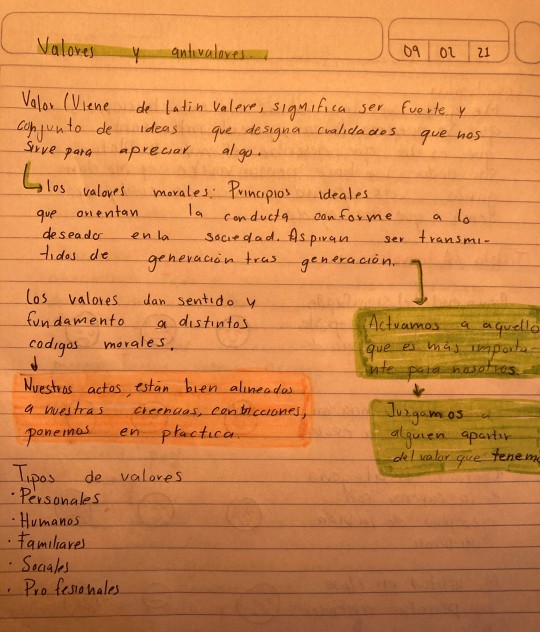 Valores y antivalores.
09 02 21
Valor (Viene de latin valere, significa ser fuerte y
conjunto de ideas que designa cualidades que nos
sirve para apreciar algo.
los valores morales: Principios ideales
que orientan la conducta conforme a lo
deseado en la sociedad. Aspiran ser transmi-
tidos de generación tras generación.
Los valores dan sentido y
fundamento a distintos
codigos morales.
Actuamos a aquello
que es más importa-
nte para nosotros.
Nuestros actos, están bien alineados
a nuestras creencias, convicciones,
ponemos en practica.
Juzgamos a
alguien apartir
del valor que tenem
Tipos de valores
· Personales
· Humanos
· Familiares
· Sociales
· Profesionales